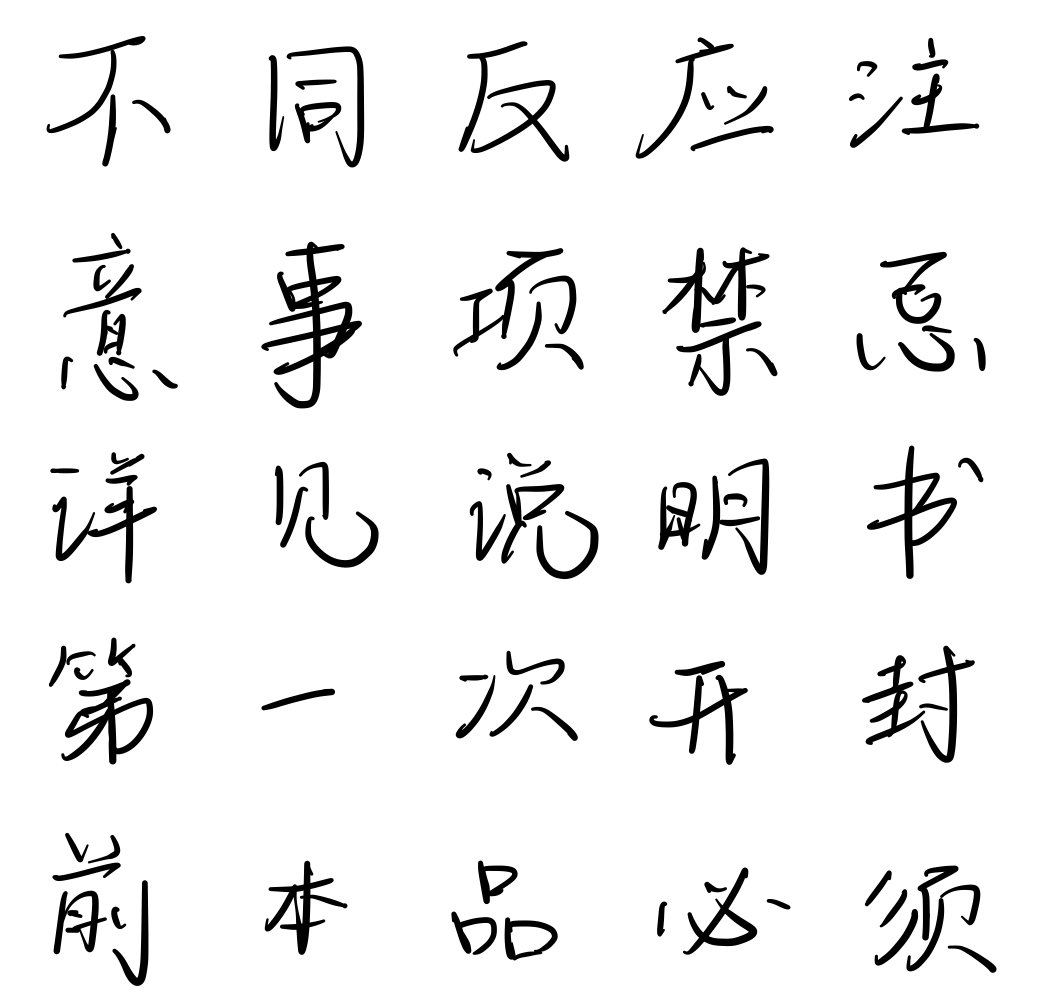 不同反应注
意事项禁忌
详见说明书
第一次开封
前本品必须